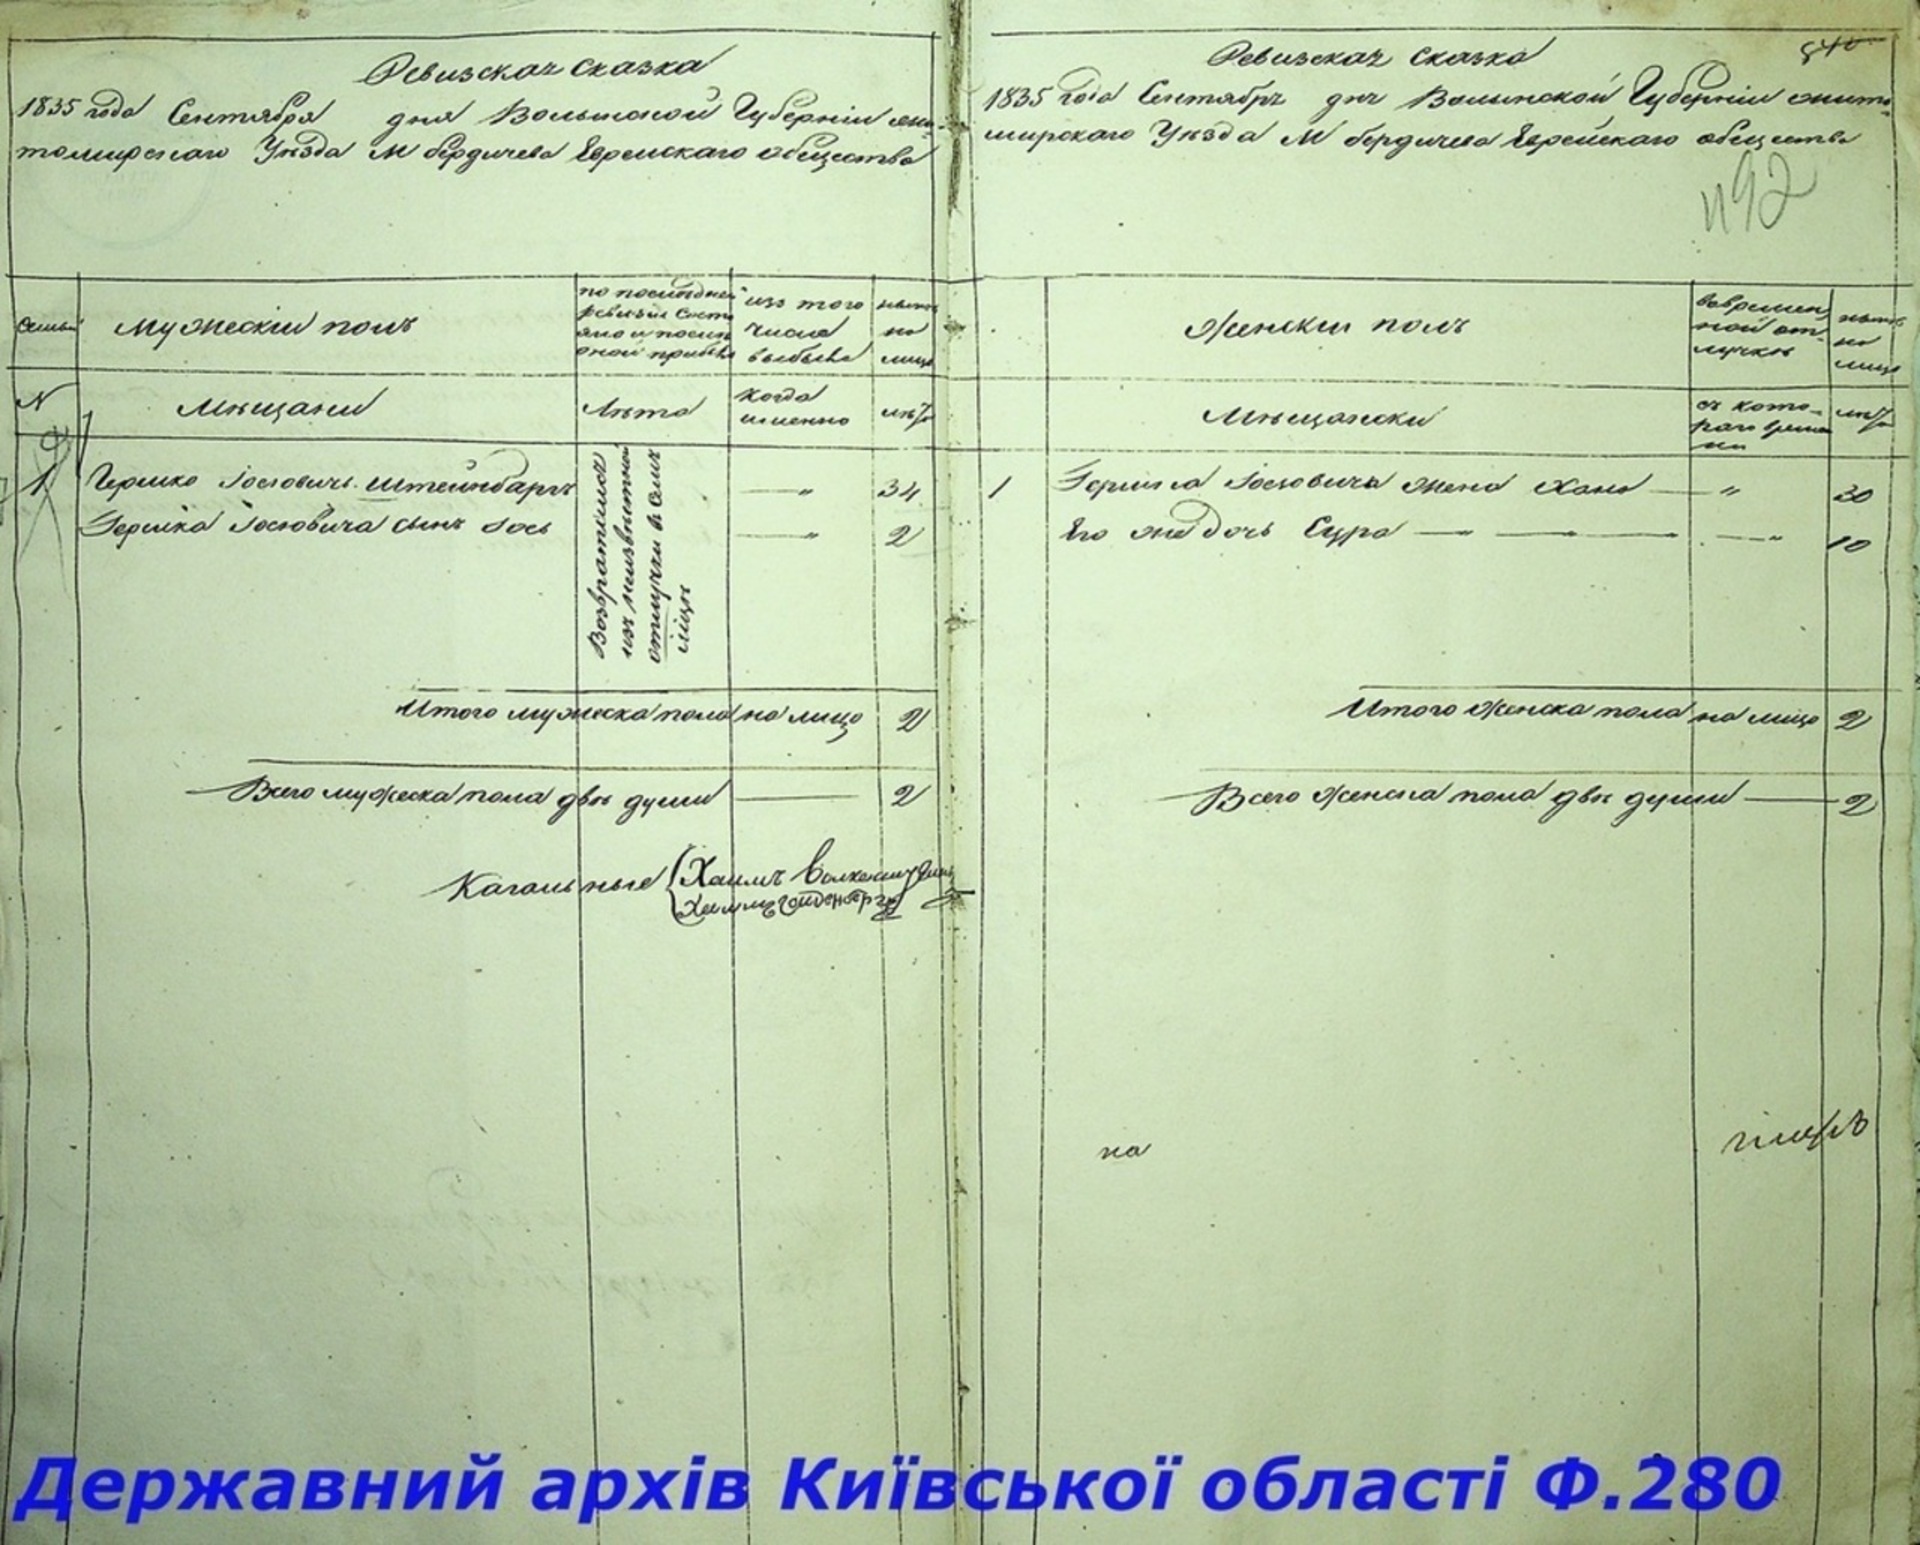 Ревизская сказка
1835 года Сентября дня Волынской Губернии Жи-
томирского Уѣзда М Бердичева Еврейского общества
семьи
Мужескій полъ
по последней
ревизіи состо
яло и после
оной прибыло
изъ того
числа
выбыло
нынѣ
на
лицо
N
Мѣщани
Лѣта
когда
именно
лѣта
1 Гершко Іосіовичъ Штейнбаргъ — " 34
Гершка Іосіовича сынъ Іось — " 2
Возвратился
изъ неизвѣстной
отлучки к симъ
Итого мужеска пола на лицо 2
Всего мужеска пола двѣ души — 2
Кагальные Хаимъ
540
Ревизская сказка
1835 года Сентябръ дня Волынской Губерніи Жито-
мирскаго Уѣзда М Бердичева Еврейскаго общества
492
Женски полъ
вовремен
ной от-
лучкѣ
нынѣ
на
лицо
Мѣщански
съ кото-
раго време
ни
лѣта
1 Гершка Іосіовича жена Хана — " 30
Его же дочь Сура — — — — " 10
Итого женска пола на лицо 2
Всего женска пола двѣ души — 2
на
Державний архів Київської області Ф.280